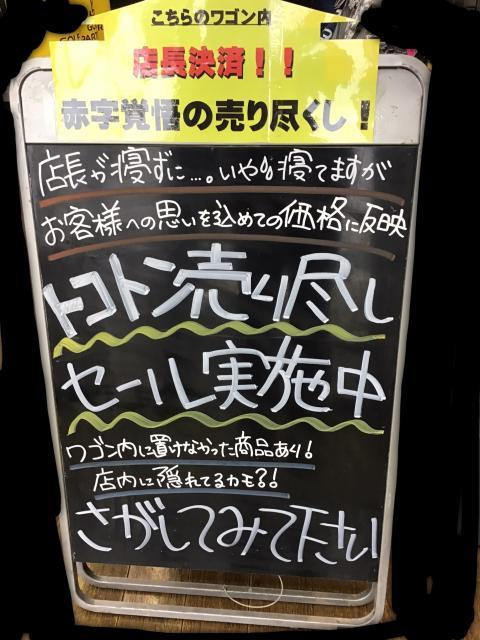 こちらのワゴン内
店長決済！！
赤字覚悟の売り尽くし！
店長が寝ずに…。いや〃寝てますが
お客様への思いを込めての価格に反映
トコトン売り尽し
セール実施中
ワゴン内に置けなかった商品あり！
店内に隠れてるカモ？！
さがしてみて下さい